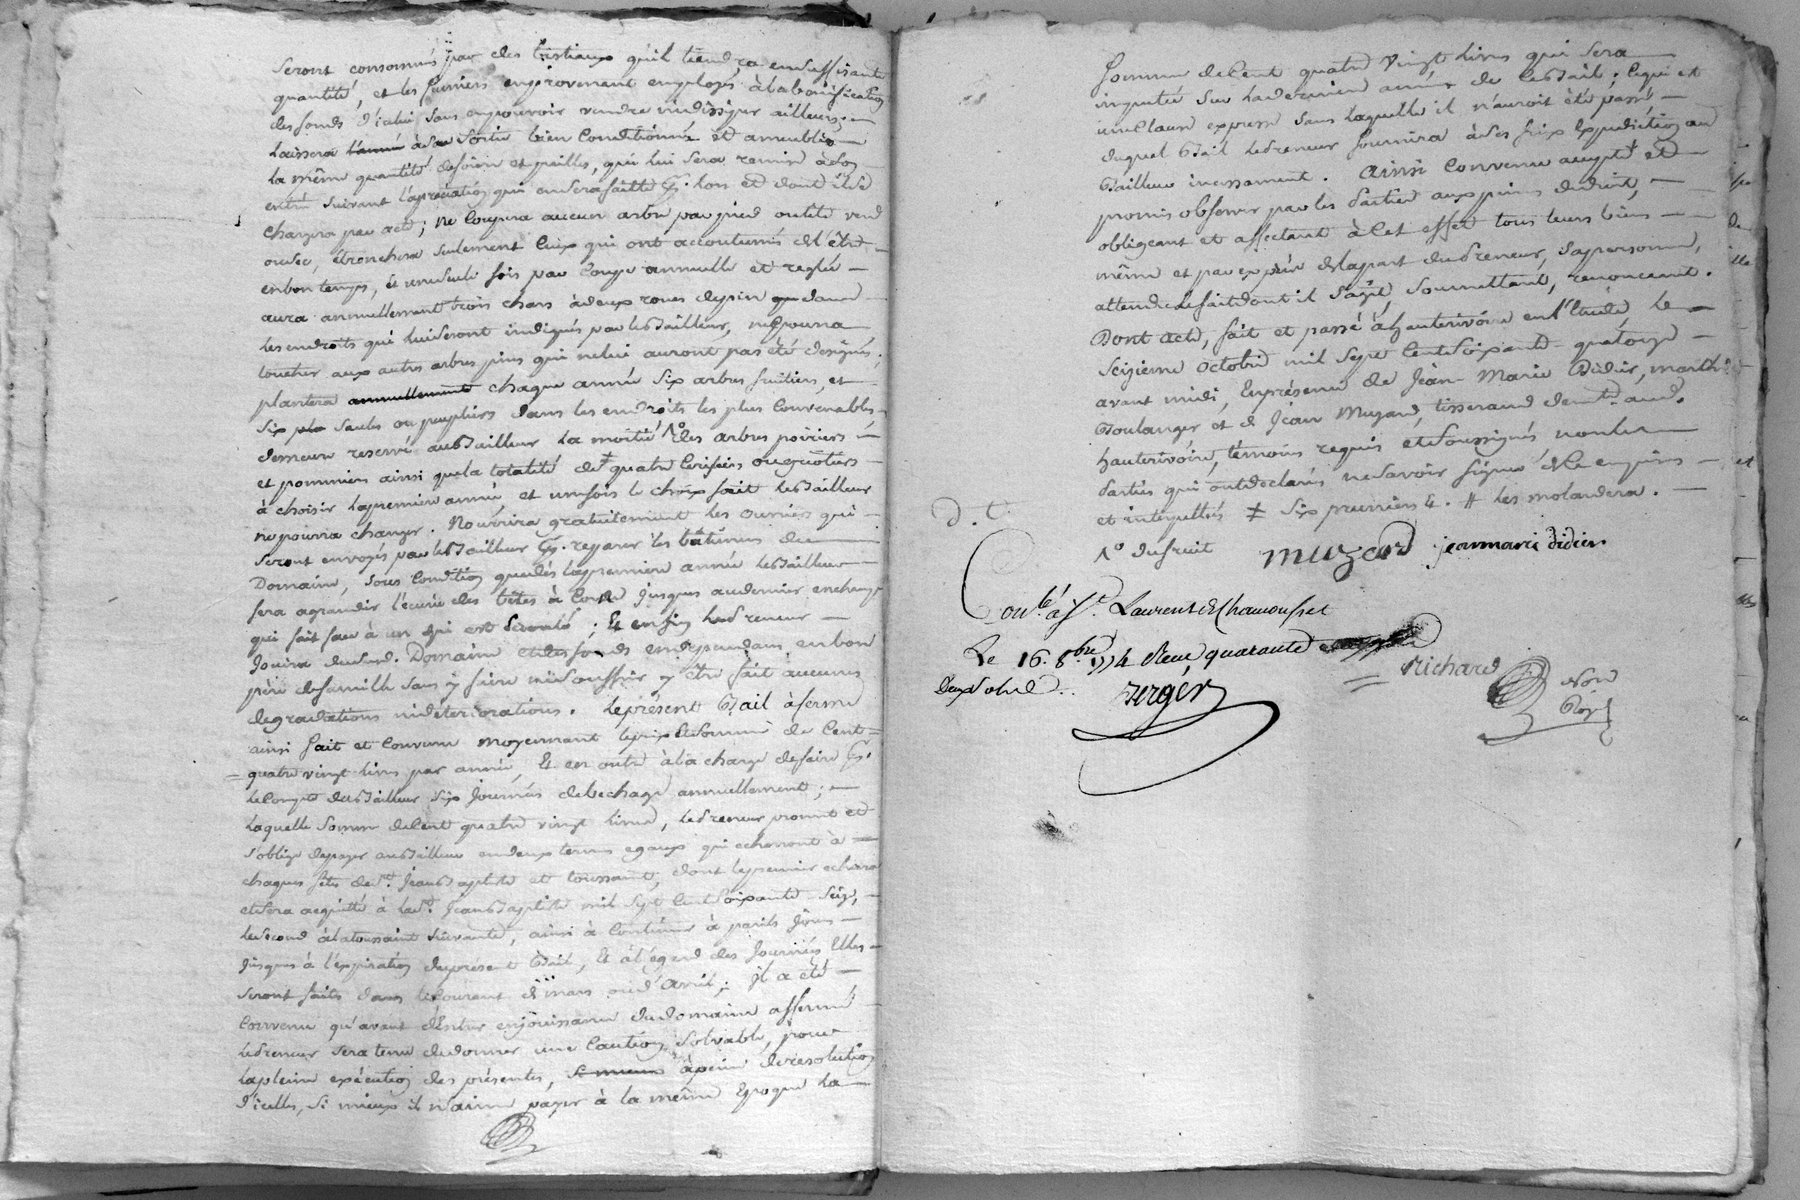 seront consommés par des bestiaux qu'il tiendra en suffisante
quantité, et les fumiers en provenant employés à la bonification
des fonds d'icelui sans en pouvoir vendre ni dissiper ailleurs; —
laissera à sa sortie bien conditionnée et ameublée
la même quantité de foin et pailles, qui lui sera remise à son
entrée suivant l'apréciation qui en sera faitte lors et dont il se
chargera par acte; ne coupera aucun arbre par pied ou tête verd
ou sec, ébronchera seulement ceux qui ont accoutumés de l'être —
en bon temps, et une seule fois par coupe annuelle et reglée —
aura annuellement trois chars à deux roues de pin dans —
les endroits qui lui seront indiqués par le Bailleur, ne pourra
toucher aux autres arbres pins qui ne lui auront pas été designés;
plantera annuellement chaque année six arbres fruitiers, et —
six saules ou peupliers dans les endroits les plus convenables —
demeure reservé au Bailleur la moitié 1° des arbres poiriers —
et pommiers ainsi que la totalité de ‡ quatre cerisiers ou griotiers
à choisir la premiere année et une fois le choix fait le Bailleur
ne pourra changer. Nourrira gratuitement les ouvriers qui —
seront envoyés par le Bailleur pr. reparer les bâtimens du
Domaine, sous condition que dès la premiere année le Bailleur
fera agrandir l'écurie des bêtes à corne jusques au dernier
qui fait face à un qui est ; Et enfin le Preneur —
jouira dudit. Domaine et des fonds en dependans, en bon
père de famille sans y faire ni souffrir y être fait aucunes
degradations ni déteriorations. Le présent Bail à ferme
ainsi fait et convenu moyennant le prix et somme de cent =
= quatre vingt livres par année, Et en outre à la charge de faire pr.
le compte du Bailleur six journées de bechage annuellement; —
laquelle somme de cent quatre vingt livres, le Preneur promet et
s'oblige de payer au Bailleur en deux termes egaux qui echerront à
chaques fêtes de St. Jean Baptiste et toussaint, dont le premier echerra
et sera acquitté à la St. Jean Baptiste mil sept cent soixante seize, —
le second à la toussaint suivante, ainsi à continuer à pareils jours —
jusques à l'expiration du présent Bail, Et à l'égard des journées Elles —
seront faites dans le courant de mars ou d'avril; il a été —
convenu qu'avant d'entrer en jouissance du domaine affermé
le Preneur sera tenu de donner une caution solvable, pour
la pleine exécution des présentes, si mieux à peine de resolution
d'icelles, si mieux il n'aime payer à la même Epoque la —
somme de cent quatre vingt livres qui sera
imputée sur la derniere année de ce Bail; ce qui est
une clause expresse sans laquelle il n'auroit été passé —
duquel Bail le Preneur fournira à ses frix Expedition au
Bailleur incessament. Ainsi convenu accepté et
promis observer par les Parties aux peines de droit, —
obligeant et affectant à cet effet tous leurs biens —
même et par exprès de la part du Preneur, sa personne,
attendu le fait dont il s'agit, soumettant, renonceant.
Dont acte, fait et passé à hauterivoire en l'Etude, le —
seizieme octobre mil sept cent soixante quatorze —
avant midi, En présence de Jean Marie Didier, marchd
Boulanger et de Jean Muzard, tisserand demt. audt.
hauterivoire, témoins requis et soussignés non les
Parties qui ont declarés ne savoir signer de ce enquis —
et interpellés ‡ six premiers #. —
1° du fruit muzard jeanmarie didier
D. C.
Conlé. à St. Laurent de Chamousset
Le 16. 8bre 1774 Recu quarante
Deux sols
Berger
Richard
Nore
Royl